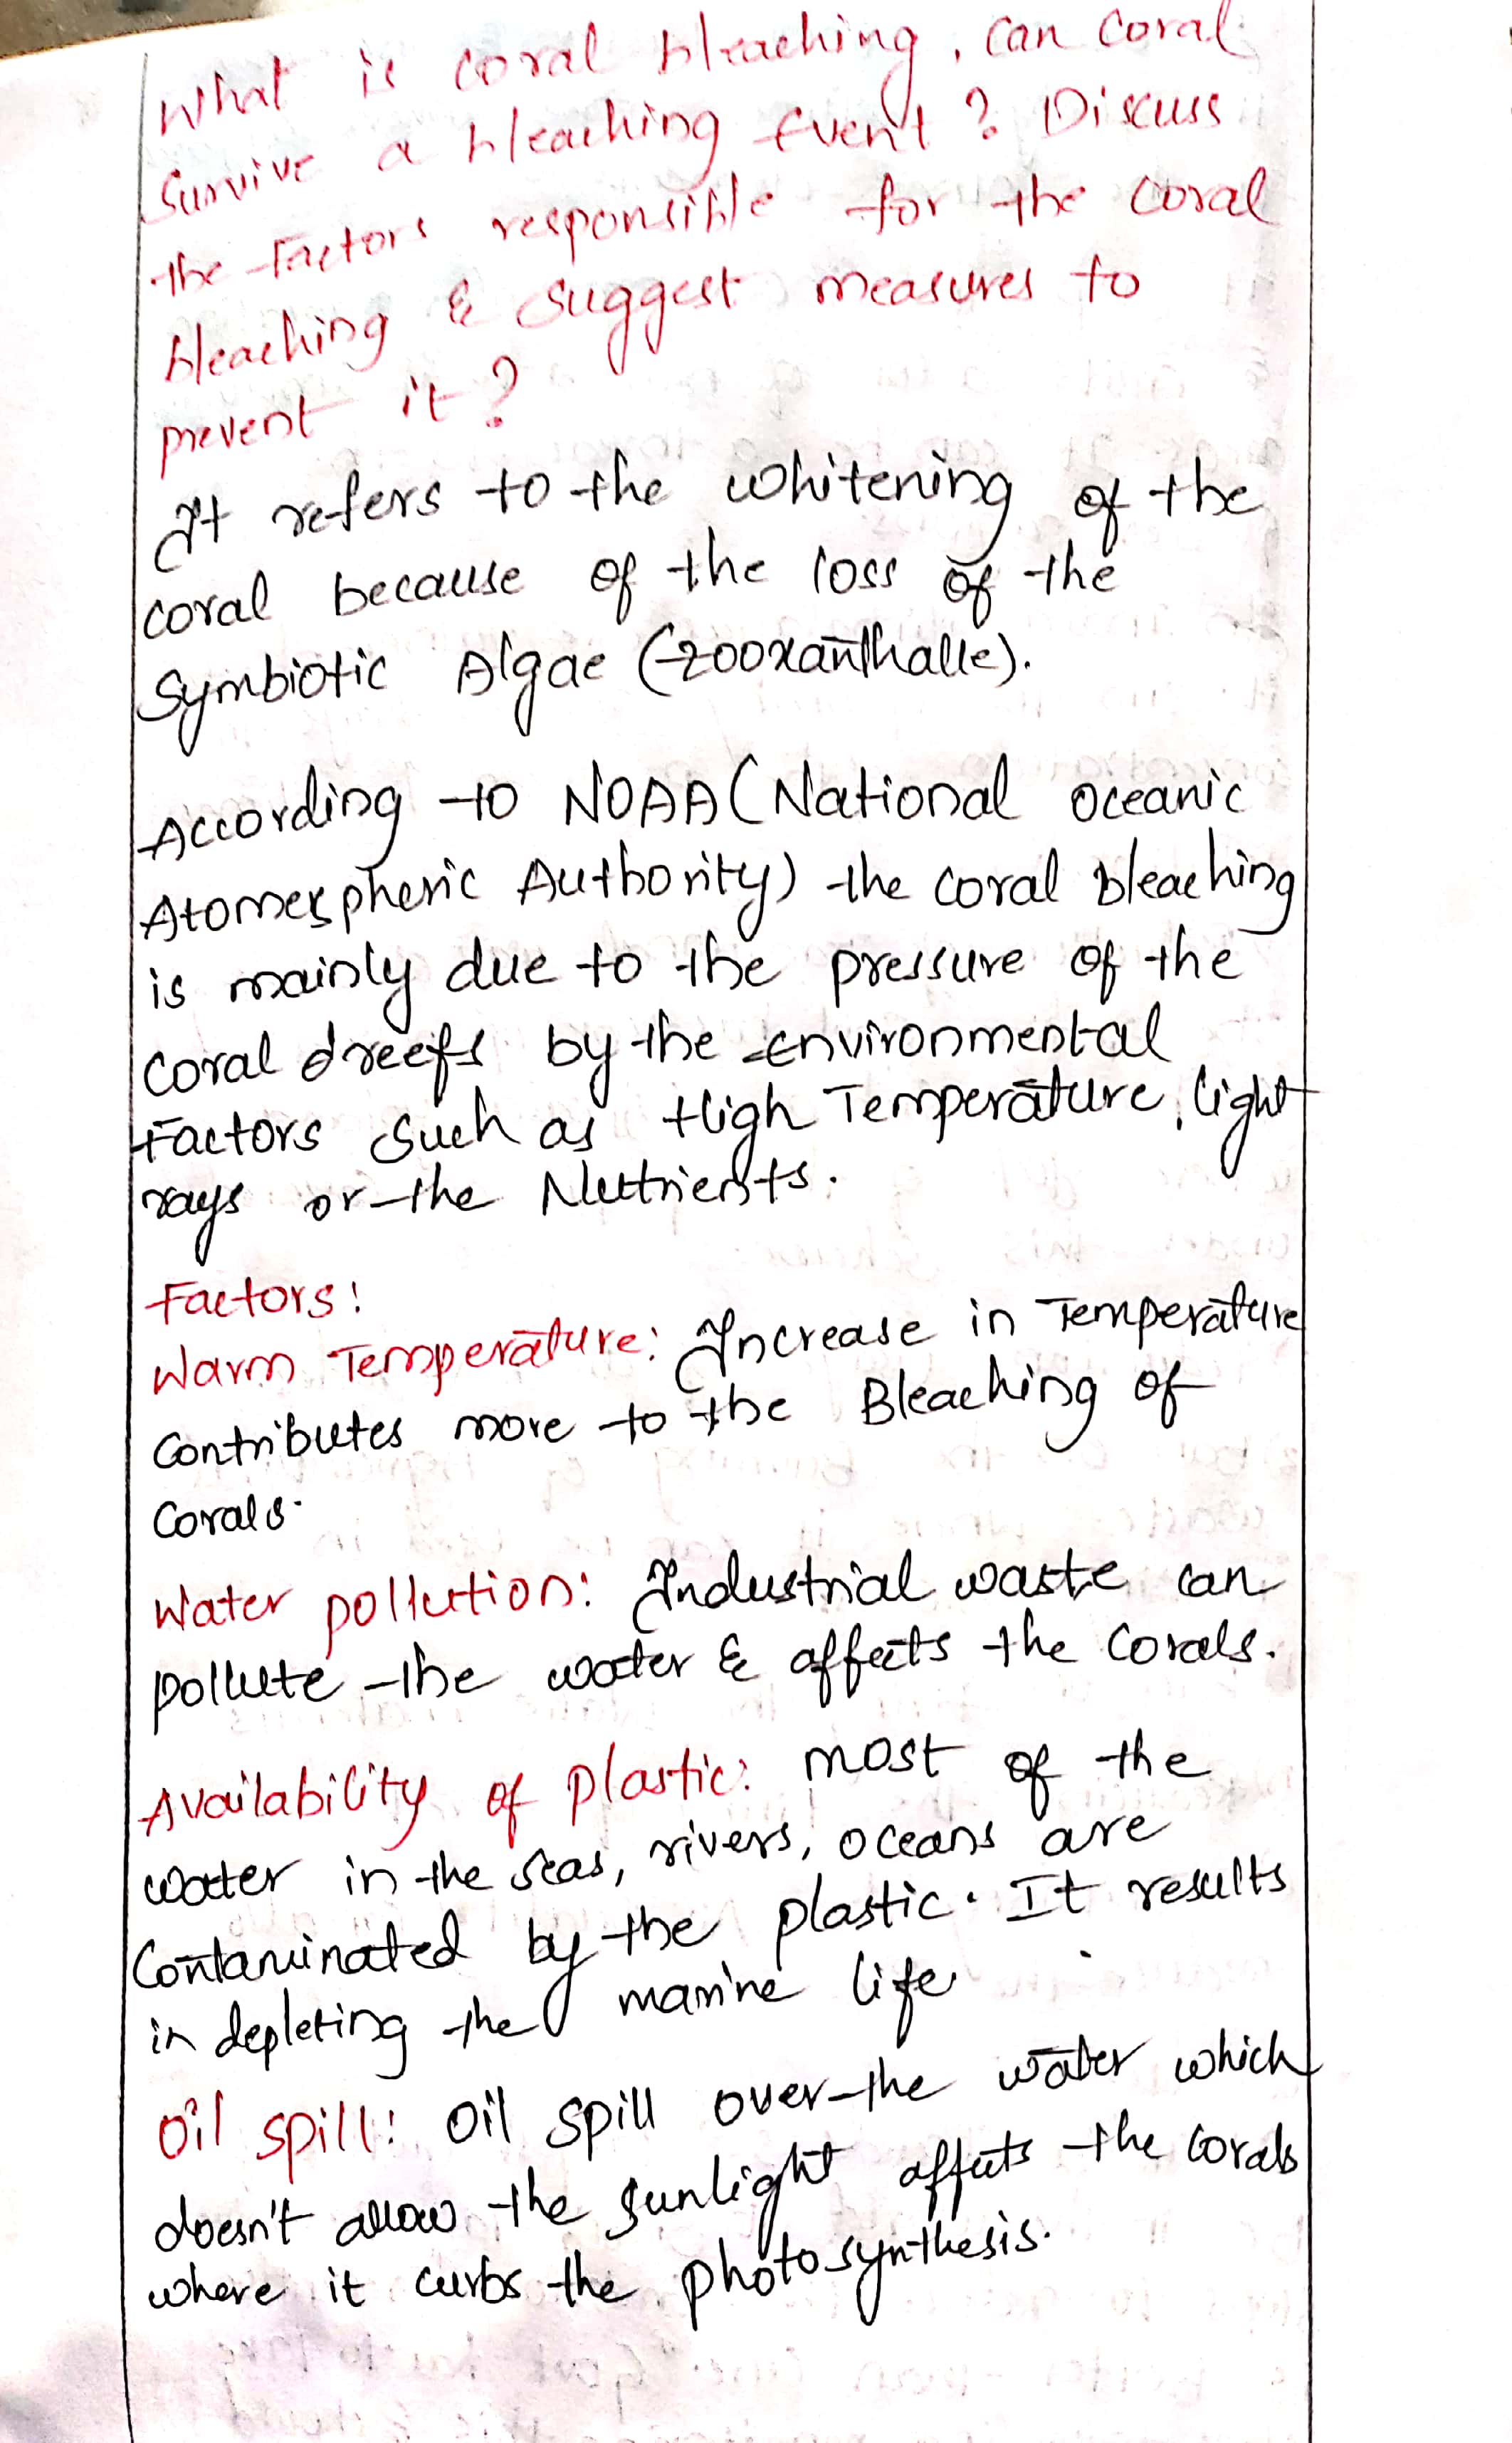 What is coral bleaching, can coral
Survive a bleaching Event? Discuss
the Factors responsible for the coral
bleaching & suggest measures to
prevent it?
It refers to the whitening of the
coral because of the loss of the
Symbiotic Algae (zooxanthalle).
According to NOAA (National oceanic
Atomespheric Authority) the coral bleaching
is mainly due to the pressure of the
coral reefs by the Environmental
Factors such as High Temperature, light
rays or the Nutrients.
Factors:
Warm Temperature: Increase in Temperature
Contributes more to the Bleaching of
Corals.
Water pollution: Industrial waste can
pollute the water & affects the corals.
Availability of plastic: most of the
water in the seas, rivers, oceans are
Contaminated by the plastic. It results
in depleting the marine life.
Oil spill: oil spill over the water which
doesn't allow the sunlight affects the corals
where it curbs the photosynthesis.